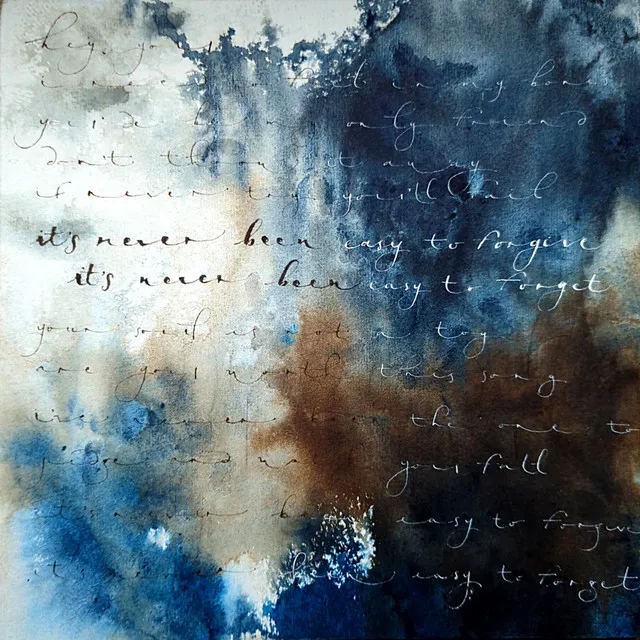 hey you
in my bones
only friend
don't throw it away
if never try you'll fail
it's never been easy to forgive
it's never been easy to forget
your soul is not a toy
are you worth this song
never been the one to
judge and your fall
it's never been easy to forgive
it's never been easy to forget